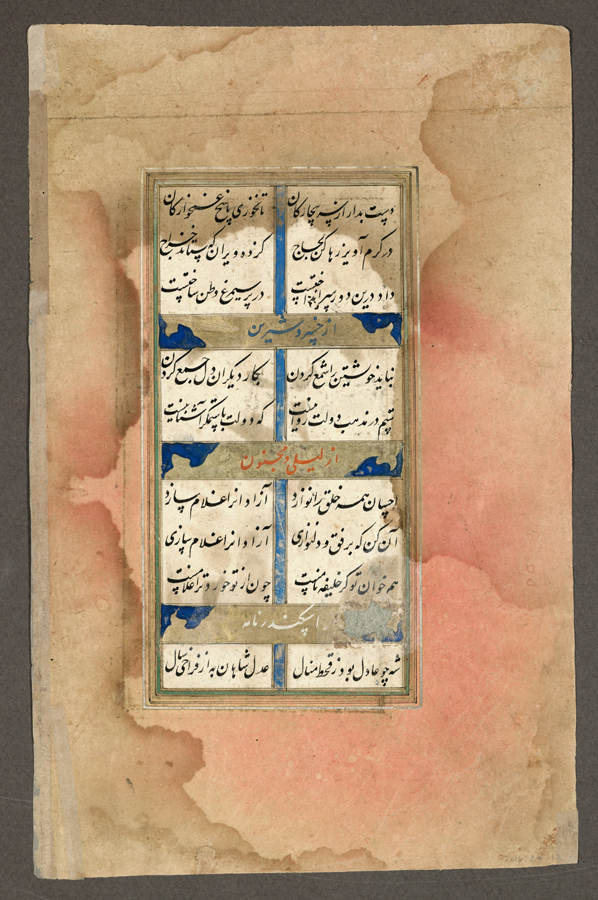 دست بدار از سر بیچارگان تا نخوری پاسخ غمخوارگان
در کرم آویز رها کن لجاج کز ده ویران که ستاند خراج
داد درین دور برانداختست در پر سیمرغ وطن ساختست
از خسرو و شیرین
نباید خویشتن را شمع کردن بکار دیگران دل جمع کردن
ستم در مذهب دولت روا نیست که دولت با ستمگر آشنا نیست
از لیلی و مجنون
احسان همه خلق را نوازد آزادانرا غلام سازد
آن کن که برفق و دلنوازی آزادانرا غلام سازی
هم خوان تو گر خلیفه نامست چون از تو خورد ترا غلامست
اسکندرنامه
شه چو عادل بود ز قحط منال عدل شاهان به از فراخی سال